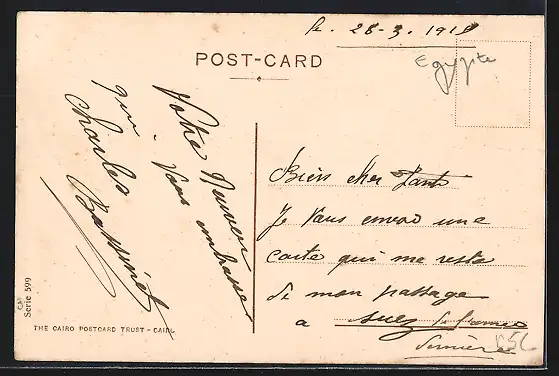 le. 28-3. 1918
POST-CARD
Egypte
Bien cher
Je Vous envoi une
carte qui me reste
de mon passage
a suez
Votre
Vous embrasse
que
Charles
Serie 599
THE CAIRO POSTCARD TRUST - CAIRO